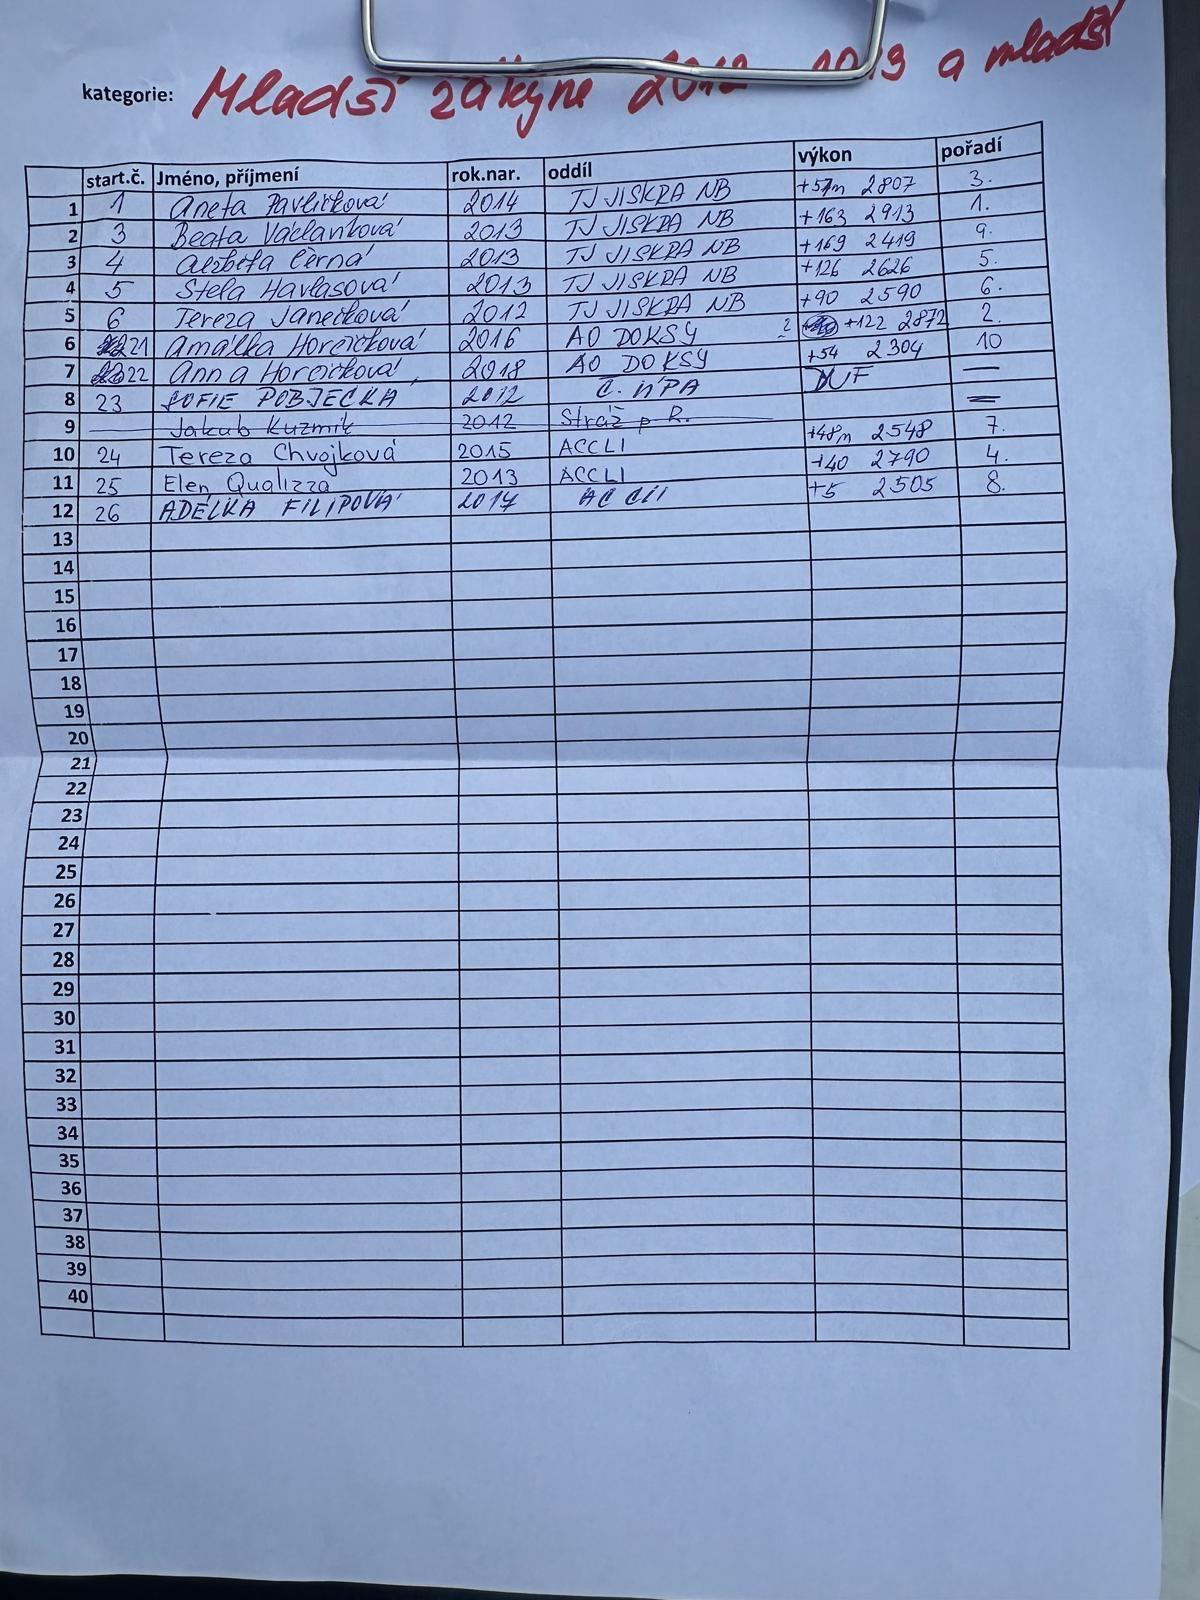 kategorie: Mladší žákyně 2012 2013 a mladší
start.č. Jméno, příjmení rok.nar. oddíl výkon pořadí
1 1 Aneta Pavlíčková 2014 TJ JISKRA NB +57m 2807 3.
2 3 Beata Václavíková 2013 TJ JISKRA NB +163 2913 1.
3 4 Alžběta Černá 2013 TJ JISKRA NB +169 2419 9.
4 5 Stela Havlasová 2013 TJ JISKRA NB +126 2626 5.
5 6 Tereza Janečková 2012 TJ JISKRA NB +90 2590 6.
6 21 Amálka Horčičková 2016 AO DOKSY ? +122 2872 2.
7 22 Anna Horčičková 2018 AO DOKSY +54 2304 10
8 23 SOFIE POBJECKÁ 2012 Č. LÍPA DNF —
9 Jakub Kuzmik 2012 Stráž p R.
10 24 Tereza Chvojková 2015 ACCLI +48m 2548 7.
11 25 Elen Qualizza 2013 ACCLI +40 2790 4.
12 26 ADÉLKA FILIPOVÁ 2017 AC ČLI +5 2505 8.
13
14
15
16
17
18
19
20
21
22
23
24
25
26
27
28
29
30
31
32
33
34
35
36
37
38
39
40